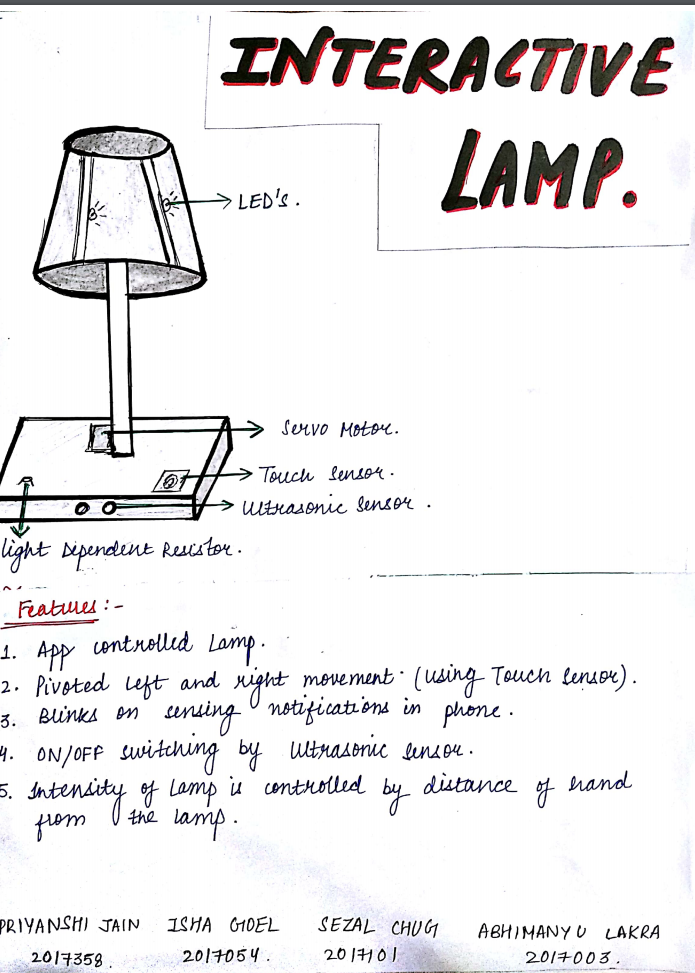 INTERACTIVE
LAMP.
LED's.
Servo Motor.
Touch Sensor.
Ultrasonic Sensor.
light Dependent Resistor.
Features :-
1. App controlled Lamp.
2. Pivoted left and right movement. (using Touch Sensor).
3. Blinks on sensing notifications in phone.
4. ON/OFF switching by Ultrasonic sensor.
5. Intensity of lamp is controlled by distance of hand
from the lamp.
PRIYANSHI JAIN ISHA GOEL SEZAL CHUG ABHIMANYU LAKRA
2017358. 2017054. 2017101 2017003.